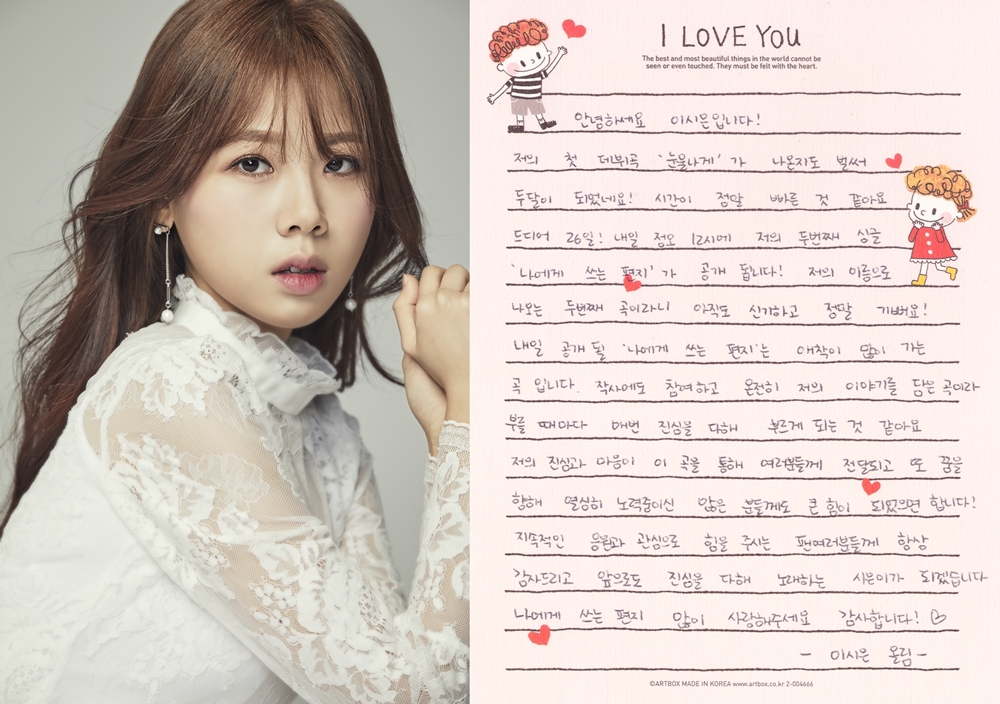 I LOVE YOU
The best and most beautiful things in the world cannot be
seen or even touched. They must be felt with the heart.
안녕하세요 이시은입니다!
저의 첫 데뷔곡 '눈물나게'가 나온지도 벌써
두달이 되었네요! 시간이 정말 빠른 것 같아요
드디어 26일! 내일 정오 12시에 저의 두번째 싱글
'나에게 쓰는 편지'가 공개 됩니다! 저의 이름으로
나오는 두번째 곡이라니 아직도 신기하고 정말 기뻐요!
내일 공개될 '나에게 쓰는 편지'는 애착이 많이 가는
곡 입니다. 작사에도 참여하고 온전히 저의 이야기를 담은 곡이라
부를 때마다 매번 진심을 다해 부르게 되는 것 같아요
저의 진심과 마음이 이 곡을 통해 여러분들께 전달되고 또 꿈을
향해 열심히 노력중이신 많은 분들께도 큰 힘이 되었으면 합니다!
지속적인 응원과 관심으로 힘을 주시는 팬여러분들께 항상
감사드리고 앞으로도 진심을 다해 노래하는 시은이가 되겠습니다
나에게 쓰는 편지 많이 사랑해주세요 감사합니다! ♡
- 이시은 올림 -
©ARTBOX MADE IN KOREA www.artbox.co.kr 2-004666